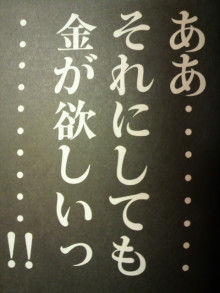 ああ・・・・・・・・・
それにしても
金が欲しいっ
・・・・・・・・・・・!!